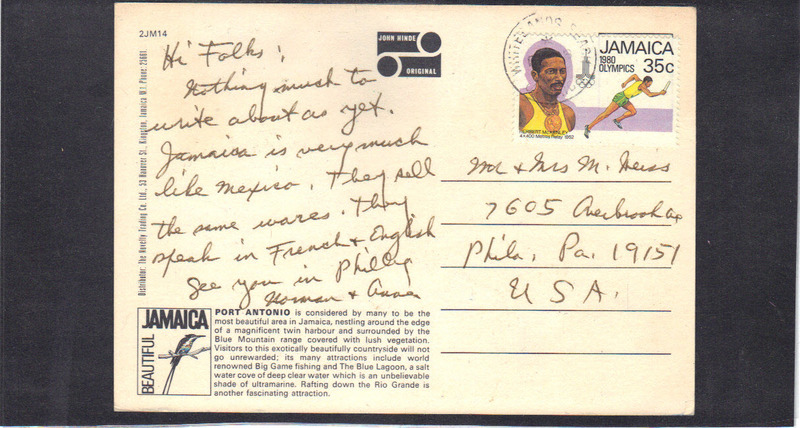 2JM14
Hi Folks:
Nothing much to
write about as yet.
Jamaica is very much
like Mexico. They sell
the same wares. They
speak in French + English
See you in Philly
Norman + Annie
JOHN HINDE
ORIGINAL
JAMAICA
1980
OLYMPICS 35c
HERBERT McKENLEY
4×400 Metres Relay 1952
Mr + Mrs M. Heiss
7605 Overbrook Ave
Phila, Pa. 19151
U S A.
Distributor: The Novelty Trading Co. Ltd., 53 Hanover St., Kingston, Jamaica W.I. Phone: 25661.
BEAUTIFUL
JAMAICA
PORT ANTONIO is considered by many to be the
most beautiful area in Jamaica, nestling around the edge
of a magnificent twin harbour and surrounded by the
Blue Mountain range covered with lush vegetation.
Visitors to this exotically beautifully countryside will not
go unrewarded; its many attractions include world
renowned Big Game fishing and The Blue Lagoon, a salt
water cove of deep clear water which is an unbelievable
shade of ultramarine. Rafting down the Rio Grande is
another fascinating attraction.